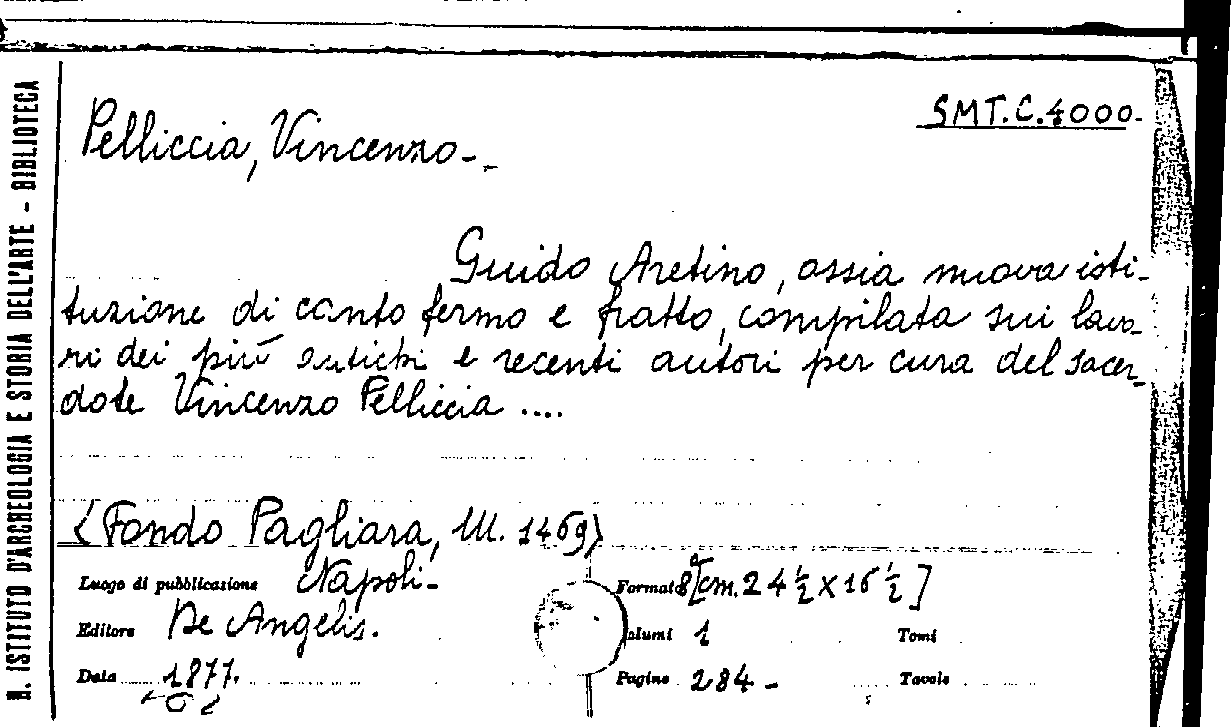 SMT.C.4000.
Pelliccia, Vincenzo-.
Guido Aretino, ossia nuova isti-
tuzione di canto fermo e fratto, compilata sui lavo-
ri dei più antichi e recenti autori per cura del sacer-
dote Vincenzo Pelliccia ....
<Fondo Pagliara, M. 1469>
Luogo di pubblicazione Napoli-
Formato 8° [cm. 24 ½ X 16 ½ ]
Editore De Angelis.
Volumi 1 Tomi
Data 1877.
Pagine 284 - Tavole
R. ISTITUTO D'ARCHEOLOGIA E STORIA DELL'ARTE - BIBLIOTECA